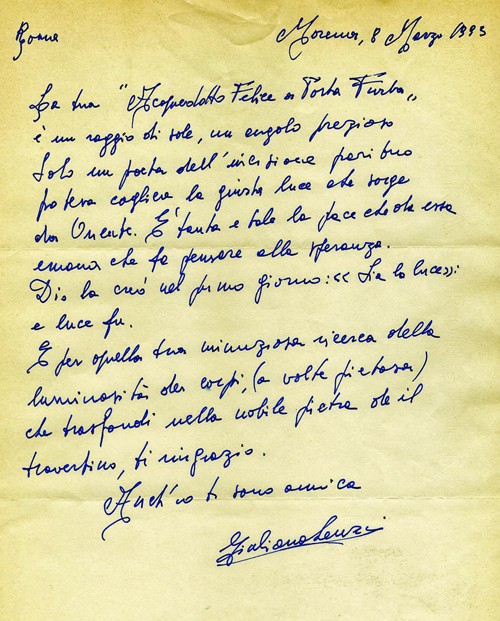 Roma
Morena, 8 Marzo 1993
La tua "Acquedotto Felice a Porta Furba"
è un raggio di sole, un angolo prezioso
Solo un poeta dell'incisione par tuo
poteva cogliere la giusta luce che sorge
da Oriente. E' tanta e tale la pace che da essa
emana che fa pensare alla speranza.
Dio la creò nel primo giorno: << Sia la luce>>:
e luce fu.
E per quella tua minuziosa ricerca della
luminosità dei corpi, (a volte pietosa)
che trasfondi nella nobile pietra de il
travertino, ti ringrazio.
Anch'io ti sono amica
Giuliana